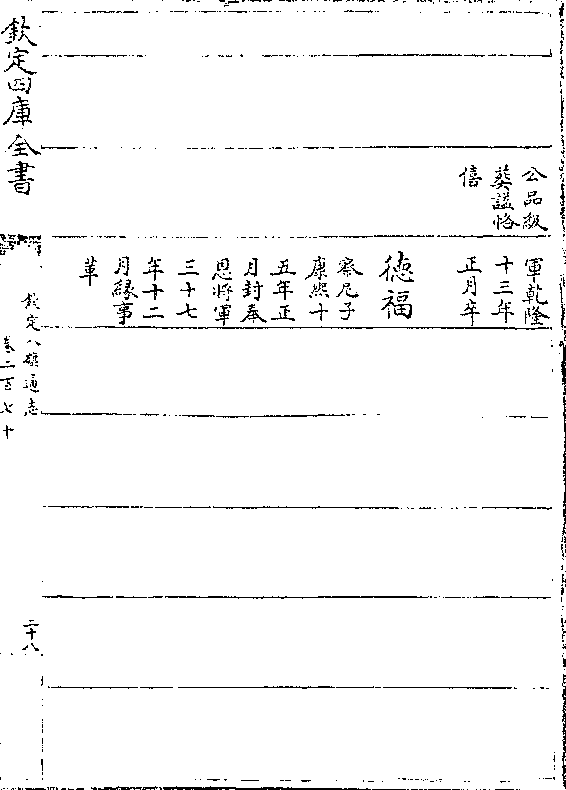 公品級
葵謚恪
僖
軍乾隆
十三年
正月卒
德福
察尼子
康熙十
五年正
月封奉
恩將軍
三十七
年十二
月緣事
革
欽定四庫全書
欽定八旗通志
卷二百七十
二十八